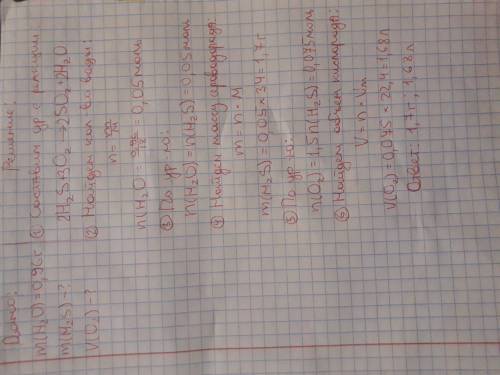 Дано:
m(H₂O)=0,96г
m(H₂S)-?
V(O₂)-?
Решение:
① Составим ур-е реакции:
2H₂S+3O₂ → 2SO₂+2H₂O
② Найдем кол-во воды:
n=m/M
n(H₂O)= =0,05 моль
③ По ур-ю:
n(H₂O)=n(H₂S)=0,05 моль
④ Найдем массу сероводорода:
m=n×M
m(H₂S)=0,05×34=1,7г
⑤ По ур-ю:
n(O₂)=1,5n(H₂S)=0,075 моль
⑥ Найдем объем кислорода:
V=n×Vm
V(O₂)=0,075×22,4=1,68л
Ответ: 1,7г; 1,68л